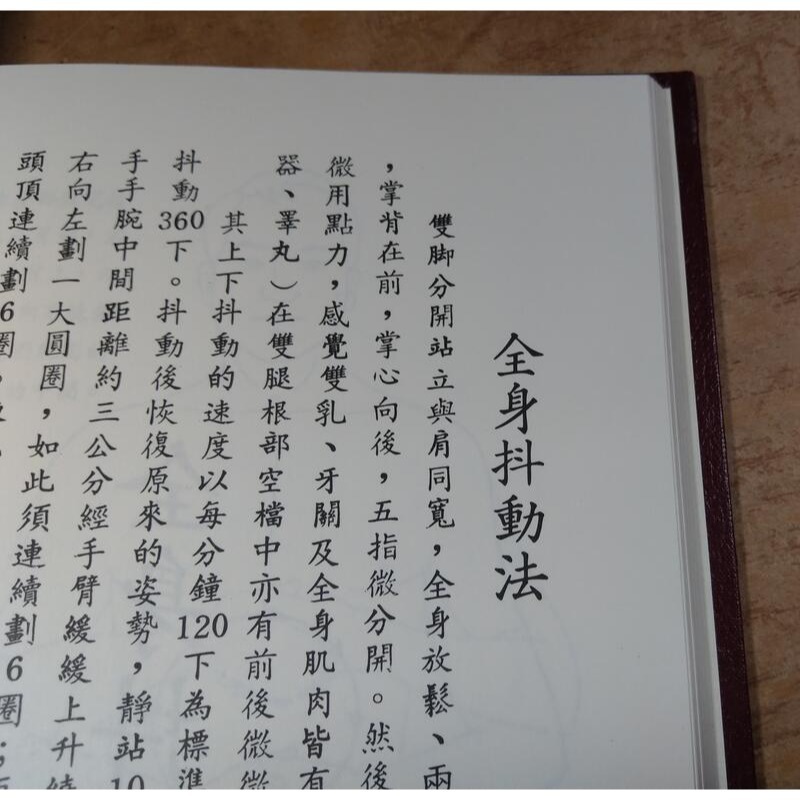 全身抖動法
雙脚分開站立與肩同寬，全身放鬆、兩
，掌背在前，掌心向後，五指微分開。然後
微用點力，感覺雙乳、牙關及全身肌肉皆有
器、睪丸）在雙腿根部空檔中亦有前後微微
其上下抖動的速度以每分鐘120下為標準
抖動360下。抖動後恢復原來的姿勢，靜站10
手手腕中間距離約三公分經手臂緩緩上升繞
右向左劃一大圓圈，如此須連續劃6圈；
頭頂連續劃6圈，